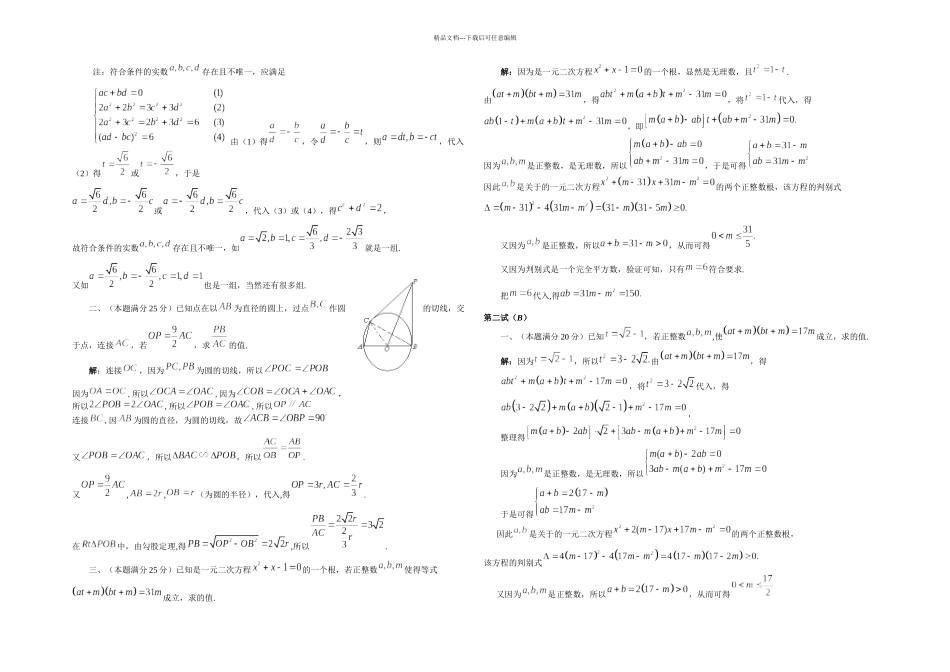 精品文档---下载后可任意编辑
注：符合条件的实数 a,b,c,d 存在且不唯一，应满足
ac+bd=0 (1)
2a²+2b²=3c²+3d² (2)
2a²+3c²=2b²+3d²=6 (3)
(ad−bc)²=6 (4)
由（1）得 a/d=−b/c，令 a/d=−b/c=t，则 a=dt,b=−ct，代入
（2）得 t=√6/2 或 t=−√6/2，于是
a=√6/2 d,b=−√6/2 c 或 a=−√6/2 d,b=√6/2 c，代入（3）或（4），得 c²+d²=2，
故符合条件的实数 a,b,c,d 存在且不唯一，如 a=√2,b=1,c=−√6/3,d=2√3/3 就是一组.
又如 a=√6/2,b=−√6/2,c=1,d=1 也是一组，当然还有很多组.
二、（本题满分 25 分）已知点在以 AB 为直径的圆上，过点 B,C 作圆 的切线，交
于点，连接 AC，若 OP=9/2 AC，求 PB/AC 的值.
解：连接 OC，因为 PC,PB 为圆的切线，所以∠POC=∠POB
因为 OA=OC，所以∠OCA=∠OAC，因为∠COB=∠OCA+∠OAC，
所以 2∠POB=2∠OAC，所以∠POB=∠OAC，所以 OP∥AC
连接 BC，因 AB 为圆的直径，为圆的切线，故∠ACB=∠OBP=90°
又∠POB=∠OAC，所以 ΔBAC∽ΔPOB，所以 AC/OB=AB/OP.
又 OP=9/2 AC，AB=2r，OB=r（为圆的半径），代入,得 OP=3r,AC=2/3 r.
在 RtΔPOB 中，由勾股定理,得 PB=√(OP²−OB²)=2√2r，所以 PB/AC=2√2r/(2/3 r)=3√2.
三、（本题满分 25 分）已知是一元二次方程 x²+x−1=0 的一个根，若正整数 a,b,m 使得等式
(at+m)(bt+m)=31m 成立，求的值.
P
C
A
O
B
解：因为是一元二次方程 x²+x−1=0 的一个根，显然是无理数，且 t²=1−t.
由 (at+m)(bt+m)=31m，得 abt²+m(a+b)t+m²=31m，将 t²=1−t 代入，得
ab(1−t)+m(a+b)t+m²=31m，即[m(a+b)−ab]t+(ab+m²−31m)=0.
因为 a,b,m 是正整数，是无理数，所以 {m(a+b)−ab=0 ab+m²−31m=0，于是可得 {a+b=31−m ab=31m−m²
因此 a,b 是关于的一元二次方程 x²+(m−31)x+31m−m²=0 的两个正整数根，该方程的判别式
Δ=(m−31)²−4(31m−m²)=(31−m)(31−5m)≥0.
又因为 a,b 是正整数，所以 a+b=31−m>0，从而可得 0<m≤31/5.
又因为判别式是一个完全平方数，验证可知，只有 m=6 符合要求.
把 m=6 代入,得 ab=31m−m²=150.
第二试（B）
一、（本题满分 20 分）已知 t=√2−1，若正整数 a,b,m,使(at+m)(bt+m)=17m 成立，求的值.
解：因为 t=√2−1，所以 t²=3−2√2.由 (at+m)(bt+m)=17m，得
abt²+m(a+b)t+m²−17m=0，将 t²=3−2√2 代入，得
ab(3−2√2)+m(a+b)(√2−1)+m²−17m=0，
整理得 [m(a+b)−2ab]√2+[3ab−m(a+b)+m²−17m]=0
因为 a,b,m 是正整数，是无理数，所以 {m(a+b)−2ab=0 3ab−m(a+b)+m²−17m=0
于是可得 {a+b=2(17−m) ab=17m−m²
因此 a,b 是关于的一元二次方程 x²+2(m−17)x+17m−m²=0 的两个正整数根，
该方程的判别式 Δ=4(m−17)²−4(17m−m²)=4(17−m)(17−2m)≥0.
又因为 a,b,m 是正整数，所以 a+b=2(17−m)>0，从而可得 0<m≤17/2